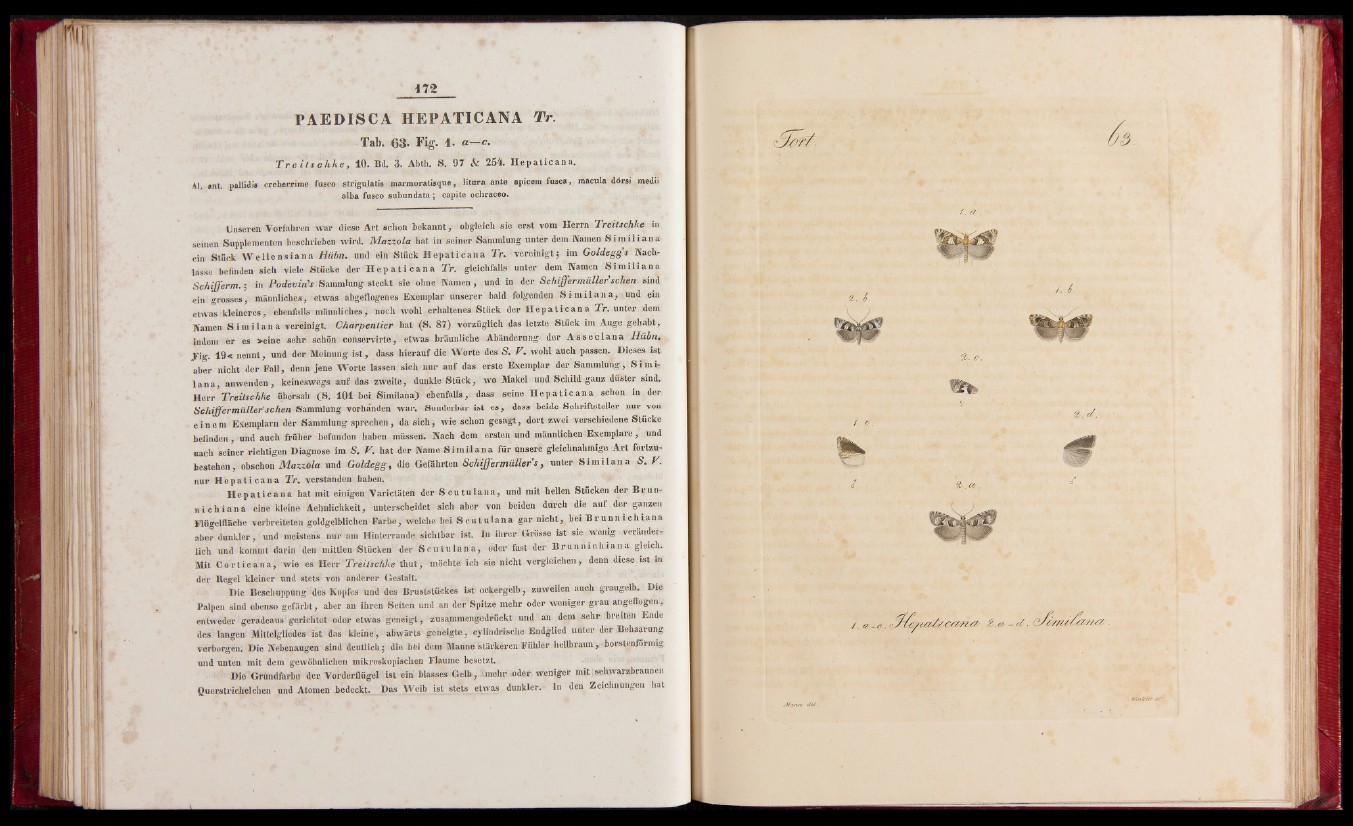 172
PAEDISCA HEPATICANA Tr.
Tab. 63. Fig. 1. a—c.
Treitschke, 10. Bd. 3. Abth. S. 97 & 254. Hepaticana.
Al. ant. pallidis creberrime fusco strigulatis marmoratisque, litura ante apicem fusca, macula dorsi medii
alba fusco subundata; capite ochraceo.
Unseren Vorfahren war diese Art schon bekannt, obgleich sie erst vom Herrn Treitschke in
seinen Supplementen beschrieben wird. Mazzola hat in seiner Sammlung unter dem Namen Similiana
ein Stück Wellensiana Hübn. und ein Stück Hepaticana Tr. vereinigt; im Goldegg's Nach-
lasse befinden sich viele Stücke der Hepaticana Tr. gleichfalls unter dem Namen Similiana
Schifferm.; in Podevin's Sammlung steckt sie ohne Namen, und in der Schiffermüller'schen sind
ein grosses, männliches, etwas abgeflogenes Exemplar unserer bald folgenden Similana, und ein
etwas kleineres, ebenfalls männliches, noch wohl erhaltenes Stück der Hepaticana Tr. unter dem
Namen Similana vereinigt. Charpentier hat (S. 87) vorzüglich das letzte Stück im Auge gehabt,
indem er es »eine sehr schön conservirte, etwas bräunliche Abänderung der Asseclana Hübn.
Fig. 19« nennt, und der Meinung ist, dass hierauf die Worte des S. V. wohl auch passen. Dieses ist
aber nicht der Fall, denn jene Worte lassen sich nur auf das erste Exemplar der Sammlung, Simi-
lana, anwenden, keineswegs auf das zweite, dunkle Stück, wo Makel und Schild ganz düster sind.
Herr Treitschke übersah (S. 101 bei Similana) ebenfalls, dass seine Hepaticana schon in der
Schiffermüller'schen Sammlung vorhanden war. Sonderbar ist es, dass beide Schriftsteller nur von
einem Exemplarn der Sammlung sprechen, da sich, wie schon gesagt, dort zwei verschiedene Stücke
befinden, und auch früher befunden haben müssen. Nach dem ersten und männlichen Exemplare, und
nach seiner richtigen Diagnose im S. V. hat der Name Similana für unsere gleichnahmige Art fortzu-
bestehen, obschon Mazzola und Goldegg, die Gefährten Schiffermüller's, unter Similana S. V.
nur Hepaticana Tr. verstanden haben.
Hepaticana hat mit einigen Varietäten der Scutulana, und mit hellen Stücken der Brun-
nichiana eine kleine Aehnlichkeit, unterscheidet sich aber von beiden durch die auf der ganzen
Flügelfläche verbreiteten goldgelblichen Farbe, welche bei Scutulana gar nicht, bei Brunnichiana
aber dunkler, und meistens nur am Hinterrande sichtbar ist. In ihrer Grösse ist sie wenig veränder-
lich und kommt darin den mittlen Stücken der Scutulana, oder fast der Brunnichiana gleich.
Mit Corticana, wie es Herr Treitschke thut, möchte ich sie nicht vergleichen, denn diese ist in
der Regel kleiner und stets von anderer Gestalt.
Die Beschuppung des Kopfes und des Bruststückes ist ockergelb, zuweilen auch graugelb. Die
Palpen sind ebenso gefärbt, aber an ihren Seiten und an der Spitze mehr oder weniger grau angeflogen,
entweder geradeaus gerichtet oder etwas geneigt, zusammengedrückt und an dem sehr breiten Ende
des langen Mittelgliedes ist das kleine, abwärts geneigte, cylindrische Endglied unter der Behaarung
verborgen. Die Nebenaugen sind deutlich; die bei dem Manne stärkeren Fühler hellbraun, borstenförmig
und unten mit dem gewöhnlichen mikroskopischen Flaume besetzt.
Die Grundfarbe der Vorderflügel ist ein blasses Gelb, mehr oder weniger mit schwarzbraunen
Querstrichelchen und Atomen bedeckt. Das Weib ist stets etwas dunkler. In den Zeichnungen hat
Tort.
63.
1. a
2. b
1. b
2. c.
1. c
2. d.
♂
♂
2. a.
1. a-c. Hepaticana 2. a-d. Similana.
Mann del.